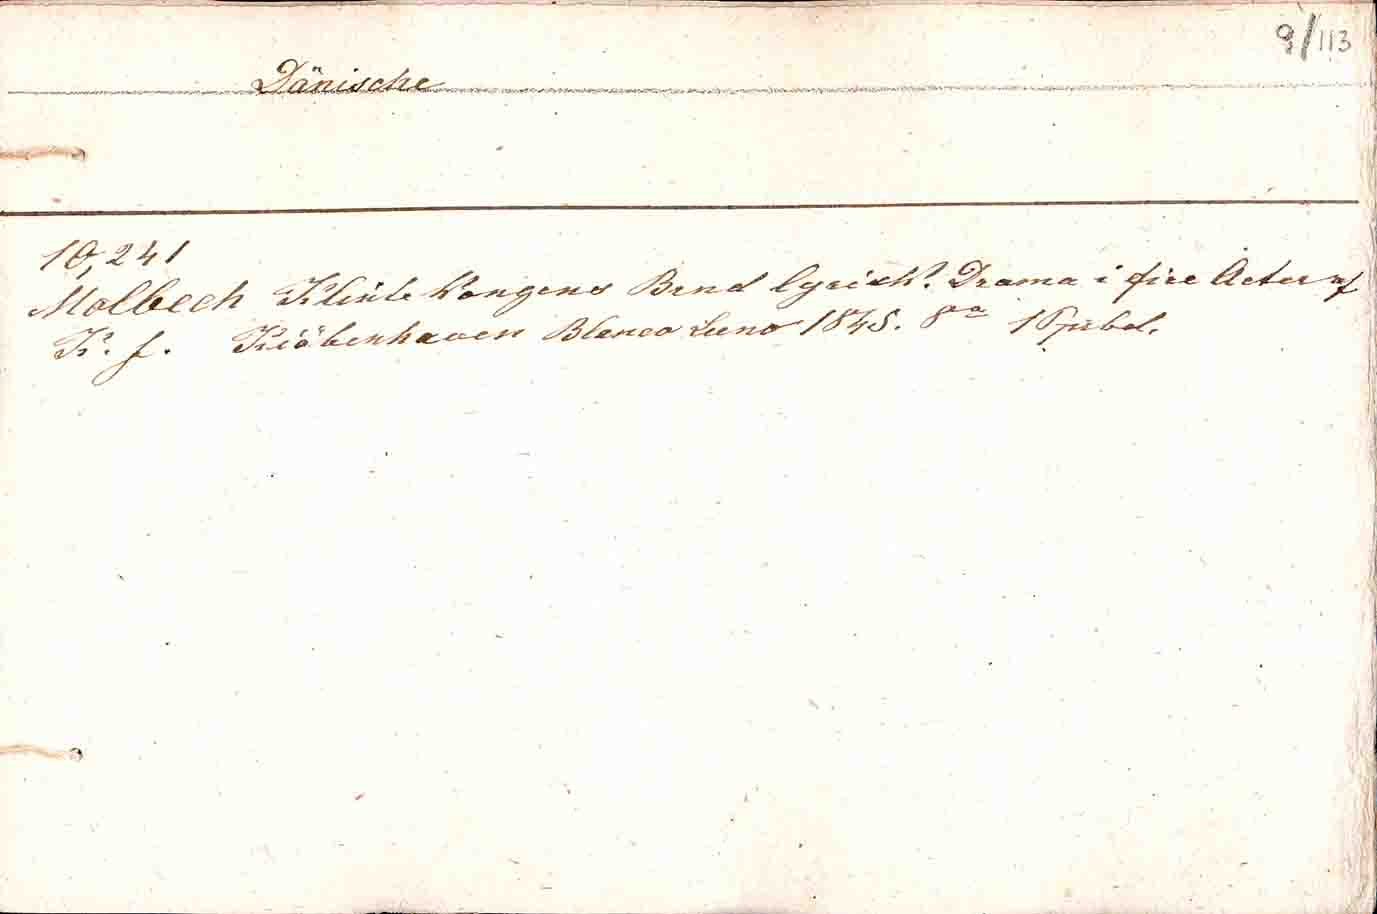 9/113
Dänische
10,241
Molbech Klinte Kongens Brud lyrisk. Drama i fire Acter af
K. f. Kiöbenhaven Bianco Luno 1845. 8º 1